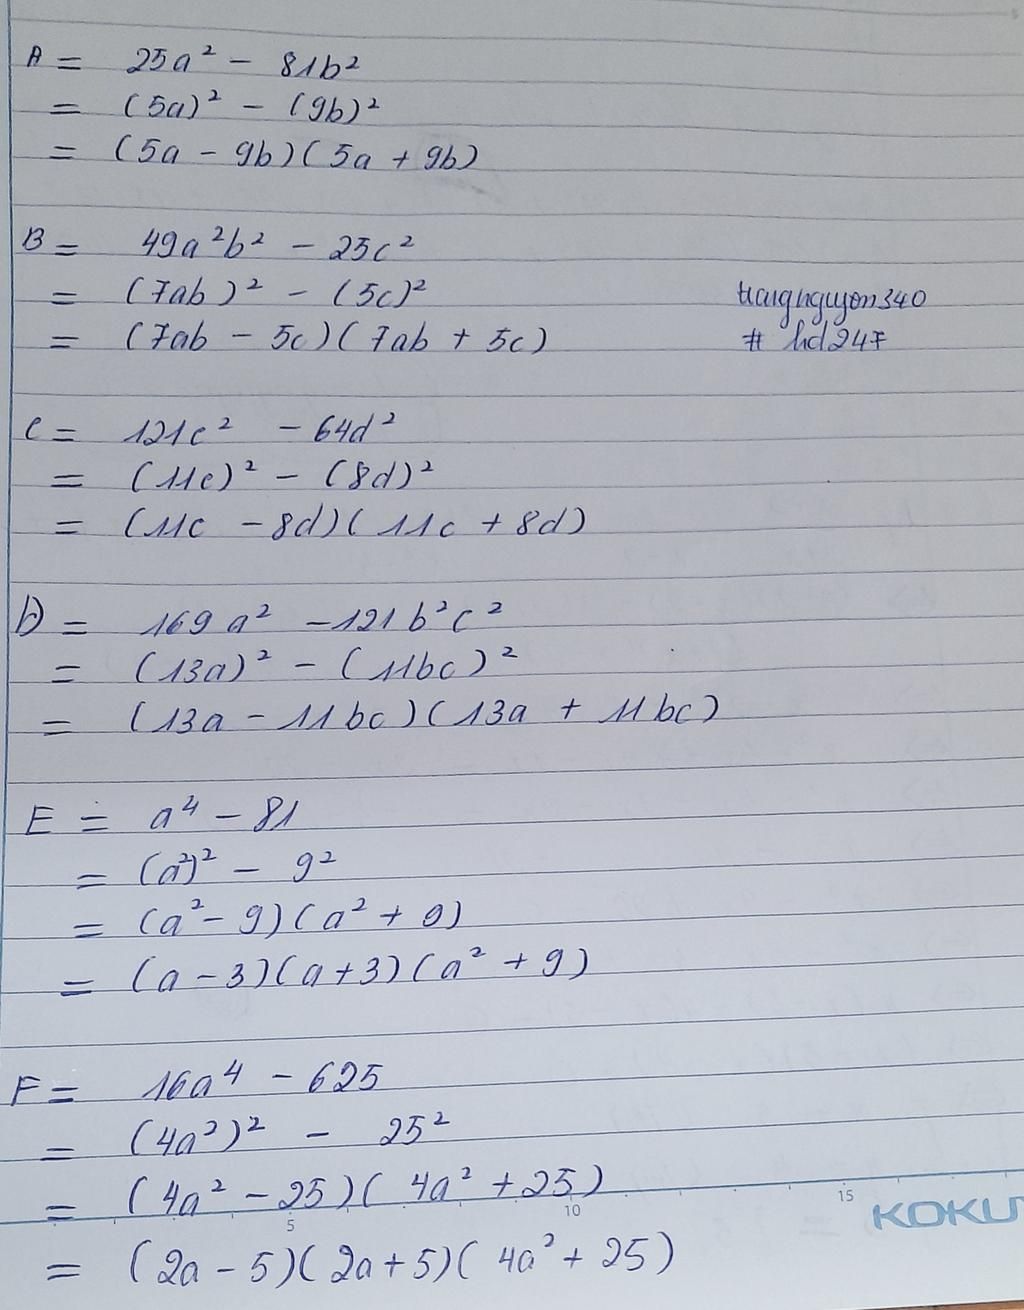 A = 25a² - 81b²
= (5a)² - (9b)²
= (5a - 9b)(5a + 9b)
B = 49a²b² - 25c²
= (7ab)² - (5c)²
= (7ab - 5c)(7ab + 5c)
trangnguyen340
# hd247
C = 121c² - 64d²
= (11c)² - (8d)²
= (11c - 8d)(11c + 8d)
D = 169a² - 121b²c²
= (13a)² - (11bc)²
= (13a - 11bc)(13a + 11bc)
E = a⁴ - 81
= (a²)² - 9²
= (a² - 9)(a² + 9)
= (a - 3)(a + 3)(a² + 9)
F = 16a⁴ - 625
= (4a²)² - 25²
= (4a² - 25)(4a² + 25)
5 10 15 KOKU
= (2a - 5)(2a + 5)(4a² + 25)